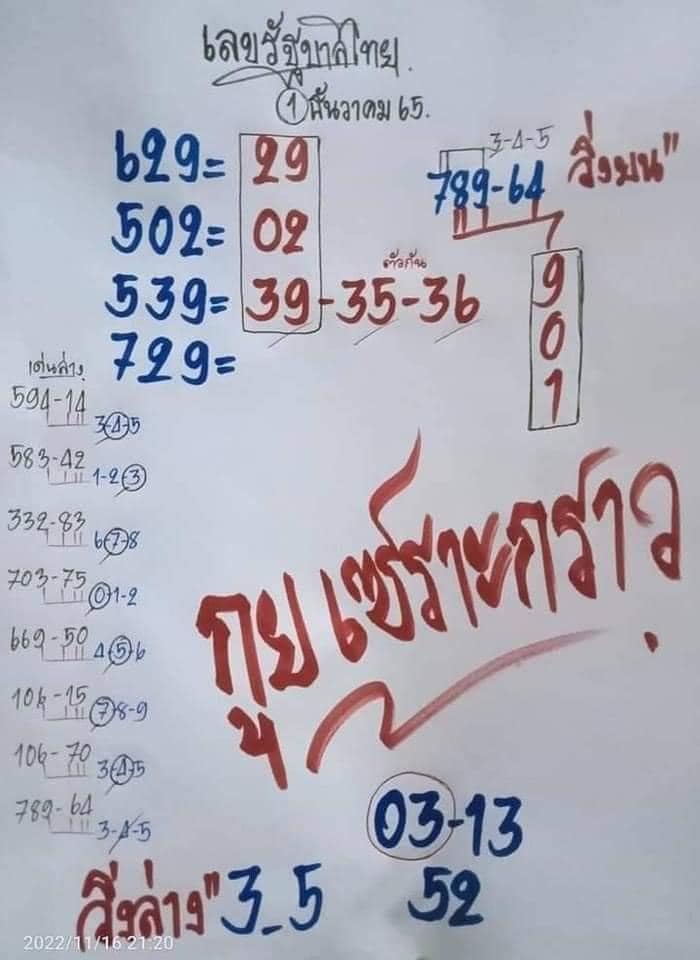 เลขรัฐบาลไทย.
1 ธันวาคม 65.
629= 29
502= 02
539= 39-35-36
ตัวกัน
729=
3-4-5
789-64 วิ่งบน"
9
0
1
เด่นล่าง
594-14 3-4-5
583-42 1-2-3
332-83 6-7-8
703-75 0-1-2
669-50 4-5-6
106-15 7-8-9
106-70 3-4-5
789-64 3-4-5
03-13
52
วิ่งล่าง" 3-5
2022/11/16 21:20